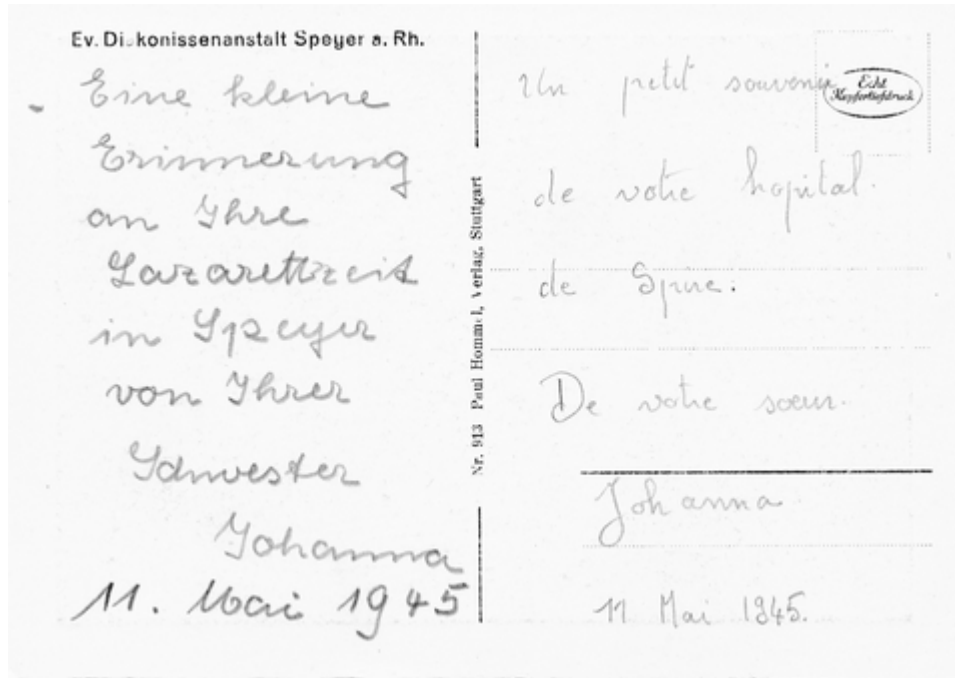 Ev. Di konissenanstalt Speyer a. Rh.
Eine kleine
Erinnerung
an Ihre
Lazarettzeit
in Speyer
von Ihrer
Schwester
Johanna
11. Mai 1945
Nr. 913 Paul Hommel, Verlag, Stuttgart
Echt
Kupfertiefdruck
Un petit souvenir
de votre hopital.
de Spire.
De votre sœur.
Johanna
11 Mai 1945.